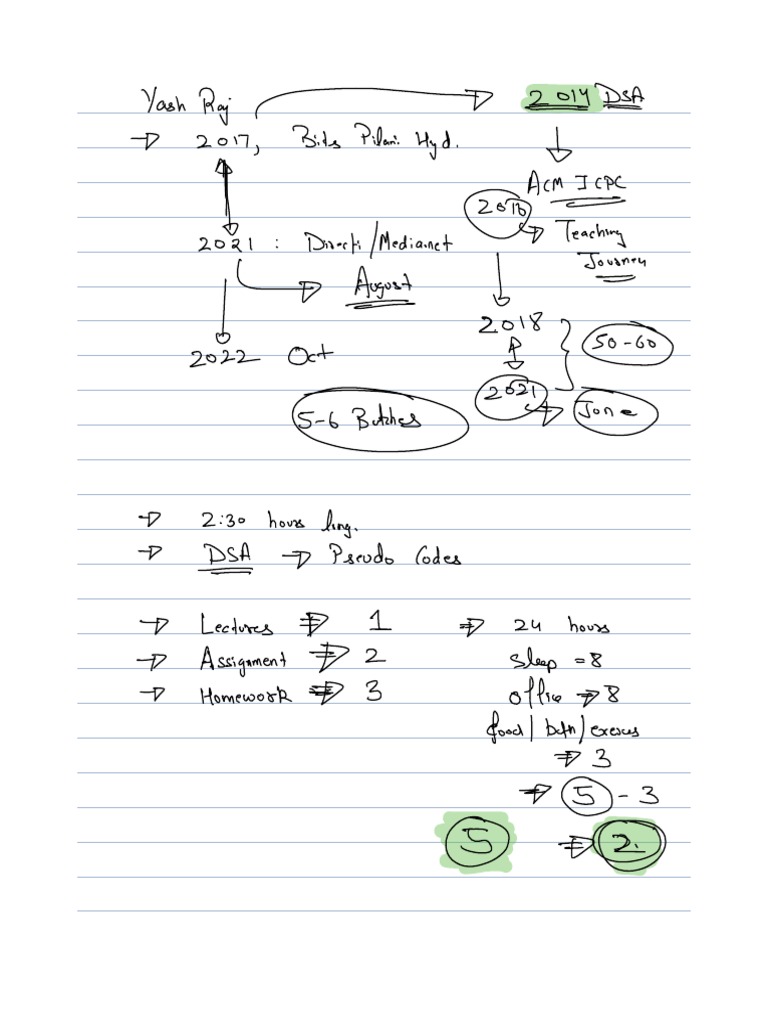 Yash Raj → 2014 DSA
→ 2017, Bits Pilani Hyd.
ACM ICPC
2016 → Teaching
Journey
2021 : Directi/Media.net
→ August
2018
50-60
2022 Oct
2021 → June
5-6 Batches
→ 2:30 hours long.
→ DSA → Pseudo Codes
→ Lectures ⇒ 1
→ Assignment ⇒ 2
→ Homework ⇒ 3
⇒ 24 hours
Sleep = 8
office → 8
food/bath/exercise
⇒ 3
⇒ 5 - 3
5 ⇒ 2.